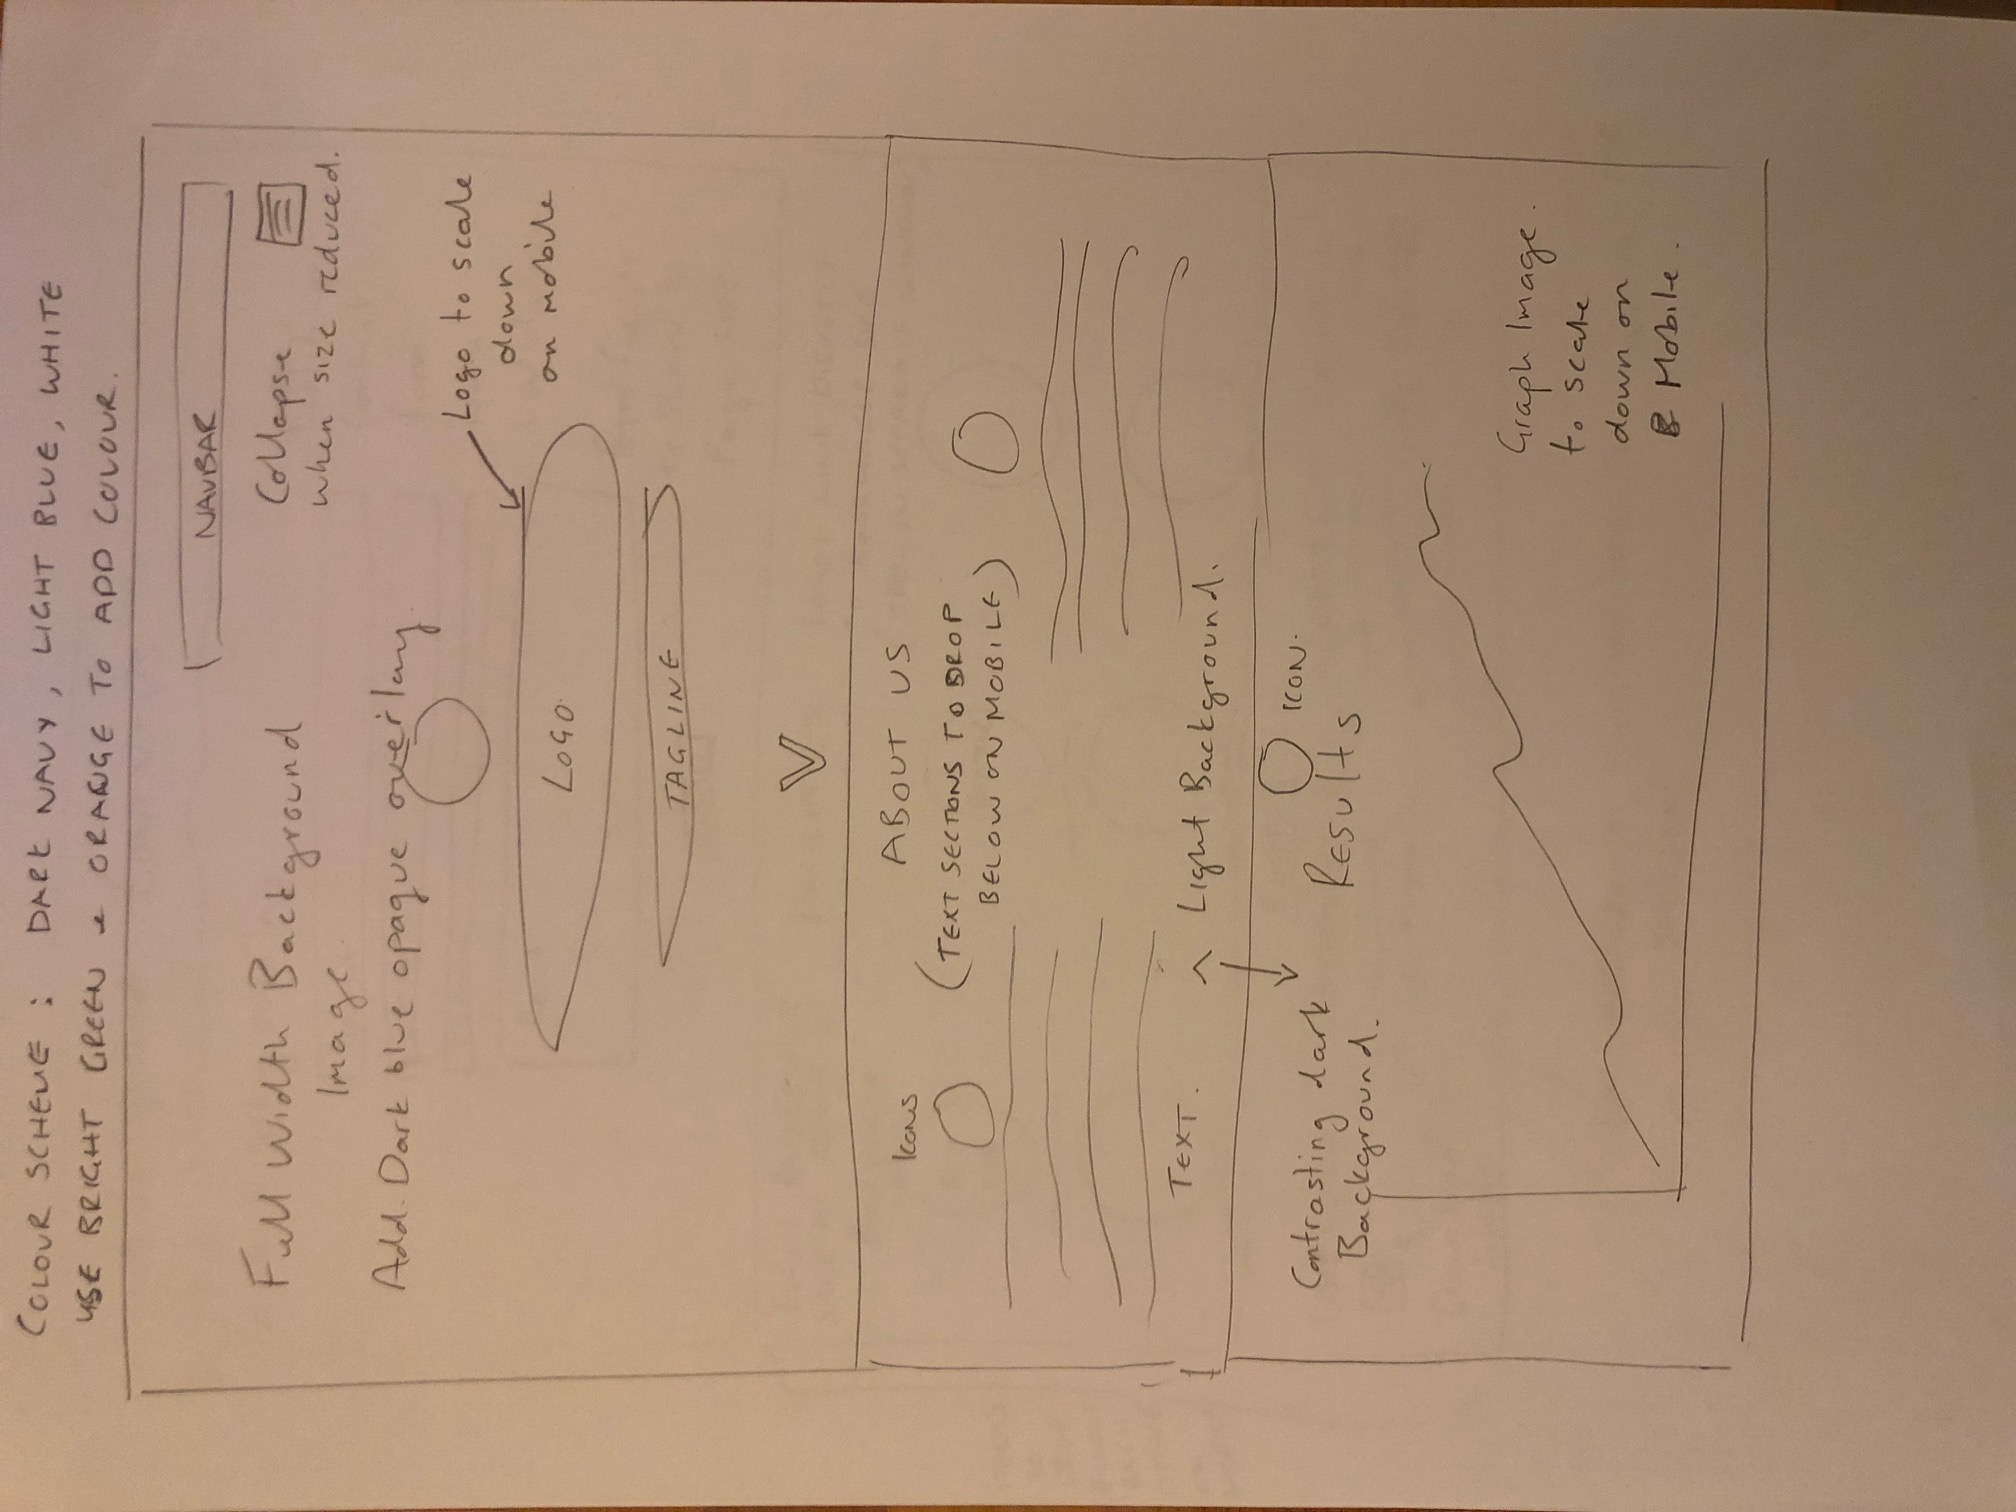 COLOUR SCHEME : DARK NAVY, LIGHT BLUE, WHITE
USE BRIGHT GREEN & ORANGE TO ADD COLOUR.
NAVBAR
Full Width Background
Image.
Collapse
when size reduced.
Add. Dark blue opaque overlay.
Logo to scale
down
on mobile
LOGO.
TAGLINE
ABOUT US
Icons
(TEXT SECTIONS TO DROP
BELOW ON MOBILE)
TEXT.
Light Background.
ICON.
Contrasting dark
Background.
Results
Graph Image.
to scale
down on
Mobile.